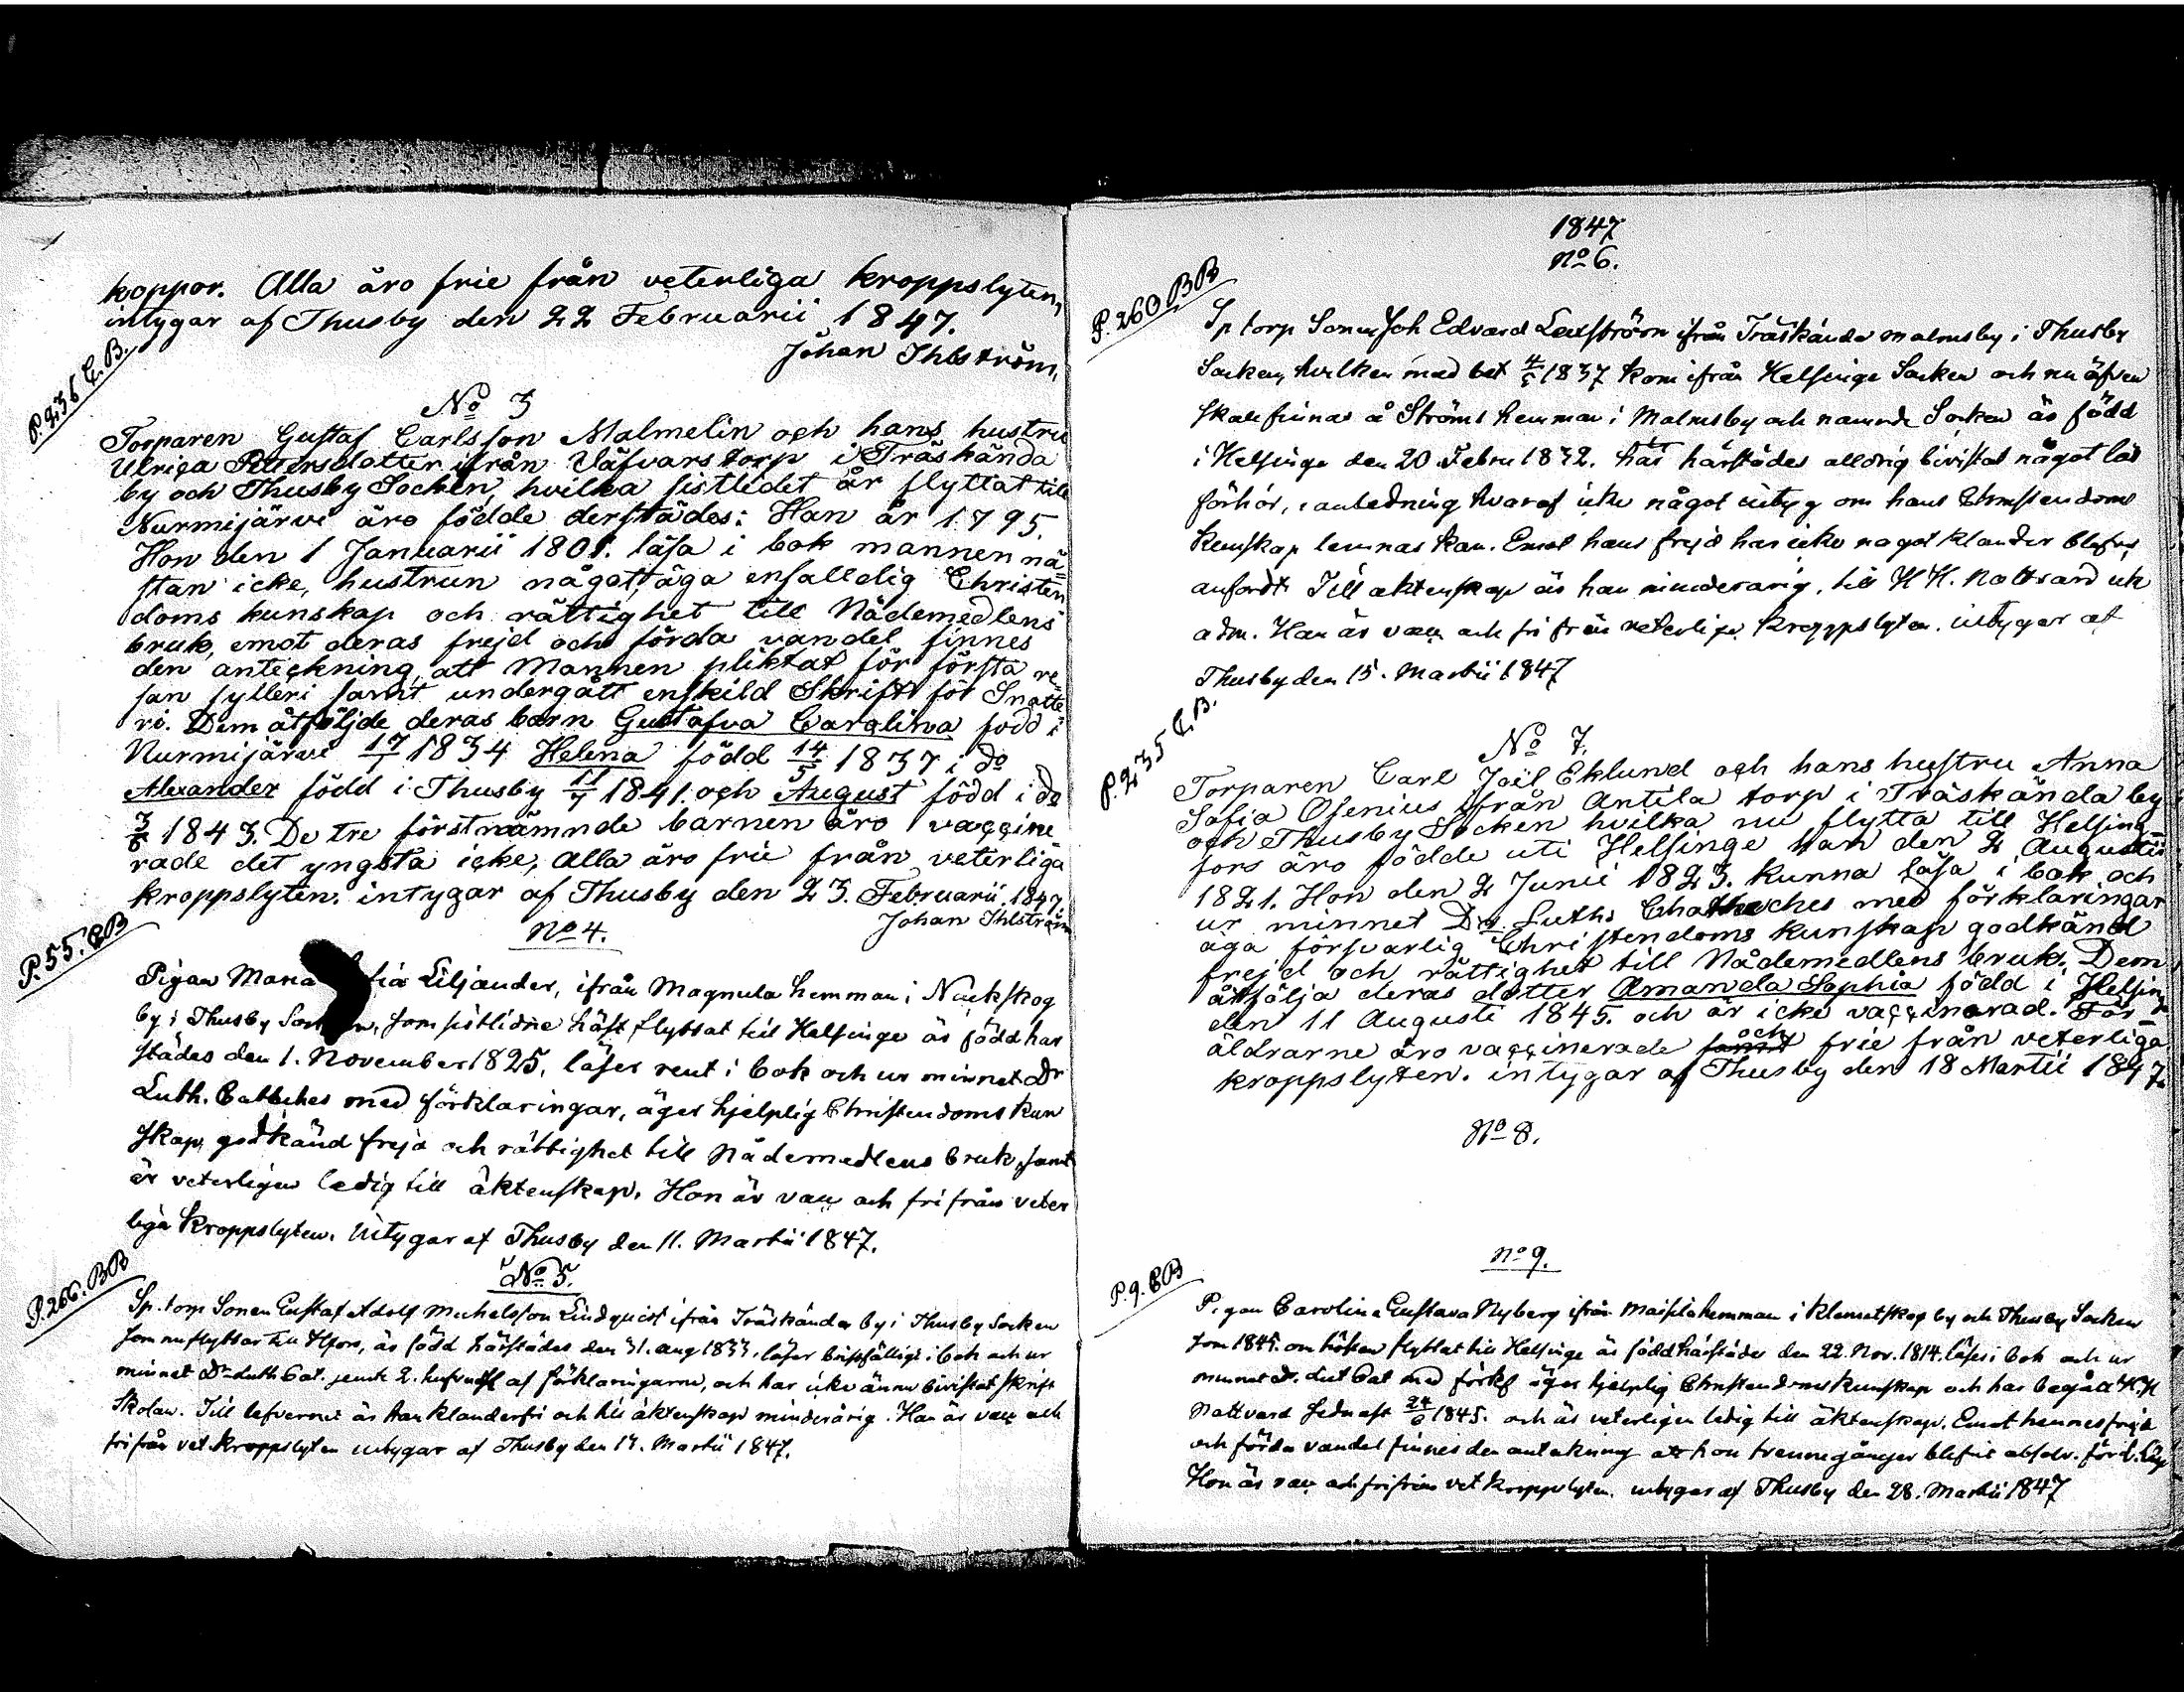 koppor. Alla äro frie från veterliga kroppslyten,
intygar af Thusby den 22 Februarii 1847.
Johan Ihlström.
P. 236 C.B.
No 3
Torparen Gustaf Carlsson Malmelin och hans hustru
Ulrica Petersdotter ifrån Väfvars torp i Träskända
by och Thusby Socken, hvilka sistledet år flyttat till
Nurmijärvi äro födde derstädes: Han år 1795.
Hon den 1 Januarii 1801. läsa i bok mannen nä=
stan icke, hustrun något, äga enfalldig Christen
doms kunskap och rättighet till Nådemedlens
bruk, emot deras frejd och förda vandel finnes
den anteckning, att Mannen pliktat för första re=
san fylleri samt undergått enskild Skrift för Snatte=
ri. Dem åtföljde deras barn Gustafva Carolina född i
Nurmijärvi 17/1 1834 Helena född 14/5 1837 i do
Alexander född i Thusby 11/7 1841. och August född i do
3/6 1843. De tre förstnämnde barnen äro vaccine
rade det yngsta icke, alla äro frie från veterliga
kroppslyten. intygar af Thusby den 23. Februarii. 1847.
Johan Ihlström
P. 55. CB
No 4.
Pigan Maria fia Liljander, ifrån Magnula hemman i Näckskog
by i Thusby Socken, som sistlidne höst flyttat till Helsinge är född här
städes den 1. November 1825, läser rent i bok och ur minnet Dr
Luth. Catteches med förklaringar, äger hjelplig Christendoms kun
skap, godkänd frejd och rättighet till Nådemedlens bruk, samt
är veterligen ledig till äktenskap. Hon är vacc och fri från veter
liga kroppslyten. intygar af Thusby den 11. Martii 1847.
P. 266. BB
No 5.
Sp. torp Sonen Gustaf Adolf Michelsson Lindquist ifrån Träskända by i Thusby Socken
som nu flyttar till Hfors, är född härstädes den 31. aug 1833. läser bristfälligt i bok och ur
minnet Dr Luth Cat. jemte 2. hufvudst af förklaringarne, och har icke ännu bivistat skrift
skolan. Till lefvernet är han klanderfri och till äktenskap minderårig. Han är vacc och
fri från vet. kroppslyten intygar af Thusby den 14. Martii 1847.
1847
No 6.
P. 260 BB
Sp torp Sonen Joh Edvard Lexström ifrån Träskända malmsby i Thusby
Socken, hvilken med bet 4/5 1837 kom ifrån Helsinge Socken och nu äfven
skall finnas å Ströms hemman i Malmsby och nämnde Socken är född
i Helsinge den 20 Febru 1832. har härstädes alldrig bivistat något läs
förhör, i anledning hvaraf icke något intyg om hans Christendoms
kunskap lemnas kan. Emot hans frejd har icke något klander blifvit
anfördt Till äktenskap är han minderårig, till H H. Nattvard ick
adm. Han är vacc och fri från veterliga kroppslyten. intygar af
Thusby den 15. Martii 1847
P. 235 C.B.
No 7.
Torparen Carl Joil Eklund och hans hustru Anna
Sofia Osenius ifrån Antila torp i Träskända by
och Thusby Socken hvilka nu flytta till Helsing=
fors äro födde uti Helsinge Han den 2 Augustii
1821. Hon den 2 Junii 1823. kunna läsa i bok och
ur minnet Dr. Luths Chatheches med förklaringar
äga försvarlig Christendoms kunskap godkänd
frejd och rättighet till Nådemedlens bruk. Dem
åtfölja deras dotter Amanda Sophia född i Helsin
den 11 Augusti 1845. och är icke vaccinerad. För=
äldrarne äro vaccinerade samt och frie från veterliga
kroppslyten. intygar af Thusby den 18 Martii 1847.
No 8.
P. 9. CB
No 9.
Pigan Carolina Gustava Nyberg ifrån Maisala hemman i Klemetskog by och Thusby Socken
som 1845. om hösten flyttat till Helsinge är född härstädes den 22. Nov. 1814. läser i bok och ur
minnet Dr. Lut Cat med förkl äger hjelplig Christendoms kunskap och har begått H. H
Nattvard sednast 24/6 1845. och är veterligen ledig till äktenskap. Emot hennes frejd
och förda vandel finnes den antekning att hon trenne gånger blifvit absolv. för
Hon är vacc och fri från vet kroppslyten. intygar af Thusby den 28. Martii 1847